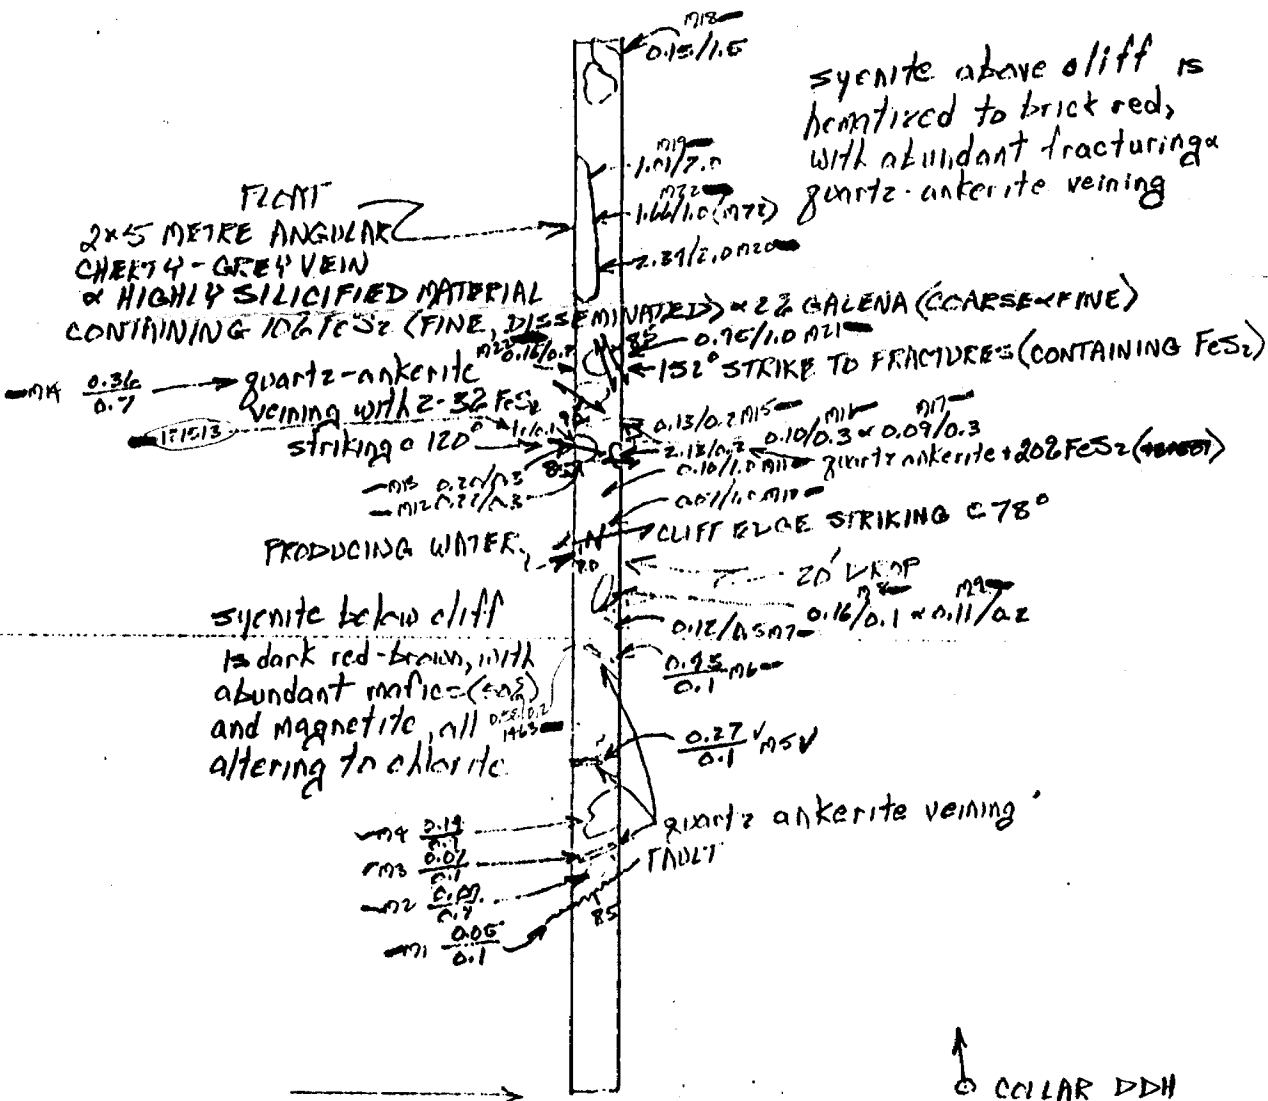 M18
0.15/1.5
syenite above cliff is
hematized to brick red,
with abundant fracturing &
quartz-ankerite veining
M19
1.01/7.0
M72
1.66/1.0 (M72)
2.39/2.0 M20
FLOAT
2x5 METRE ANGULAR
CHERTY-GREY VEIN
& HIGHLY SILICIFIED MATERIAL
CONTAINING 10% FeS2 (FINE, DISSEMINATED) & 2% GALENA (COARSE & FINE)
M22
85
0.95/1.0 M21
152° STRIKE TO FRACTURES (CONTAINING FeS2)
M14 0.36
0.7
quartz-ankerite
veining with 2-3% FeS2
striking @ 120°
0.13/0.2 M15
M16
M17
0.10/0.3 & 0.09/0.3
quartz ankerite + 20% FeS2
0.10/1.0 M11
M13 0.20/0.3
M12 0.22/0.3
M10
CLIFF EDGE STRIKING @ 78°
PRODUCING WATER
20' DROP
M8
M9
0.16/0.1 & 0.11/0.2
0.12/0.5 M7
syenite below cliff
is dark red-brown, with
abundant mafics
and magnetite, all
altering to chlorite
0.95
0.1 M6
0.27
0.1 M5
quartz ankerite veining
FAULT
M4 0.14
M3
0.1
M2
85
M1 0.05
0.1
COLLAR DDH